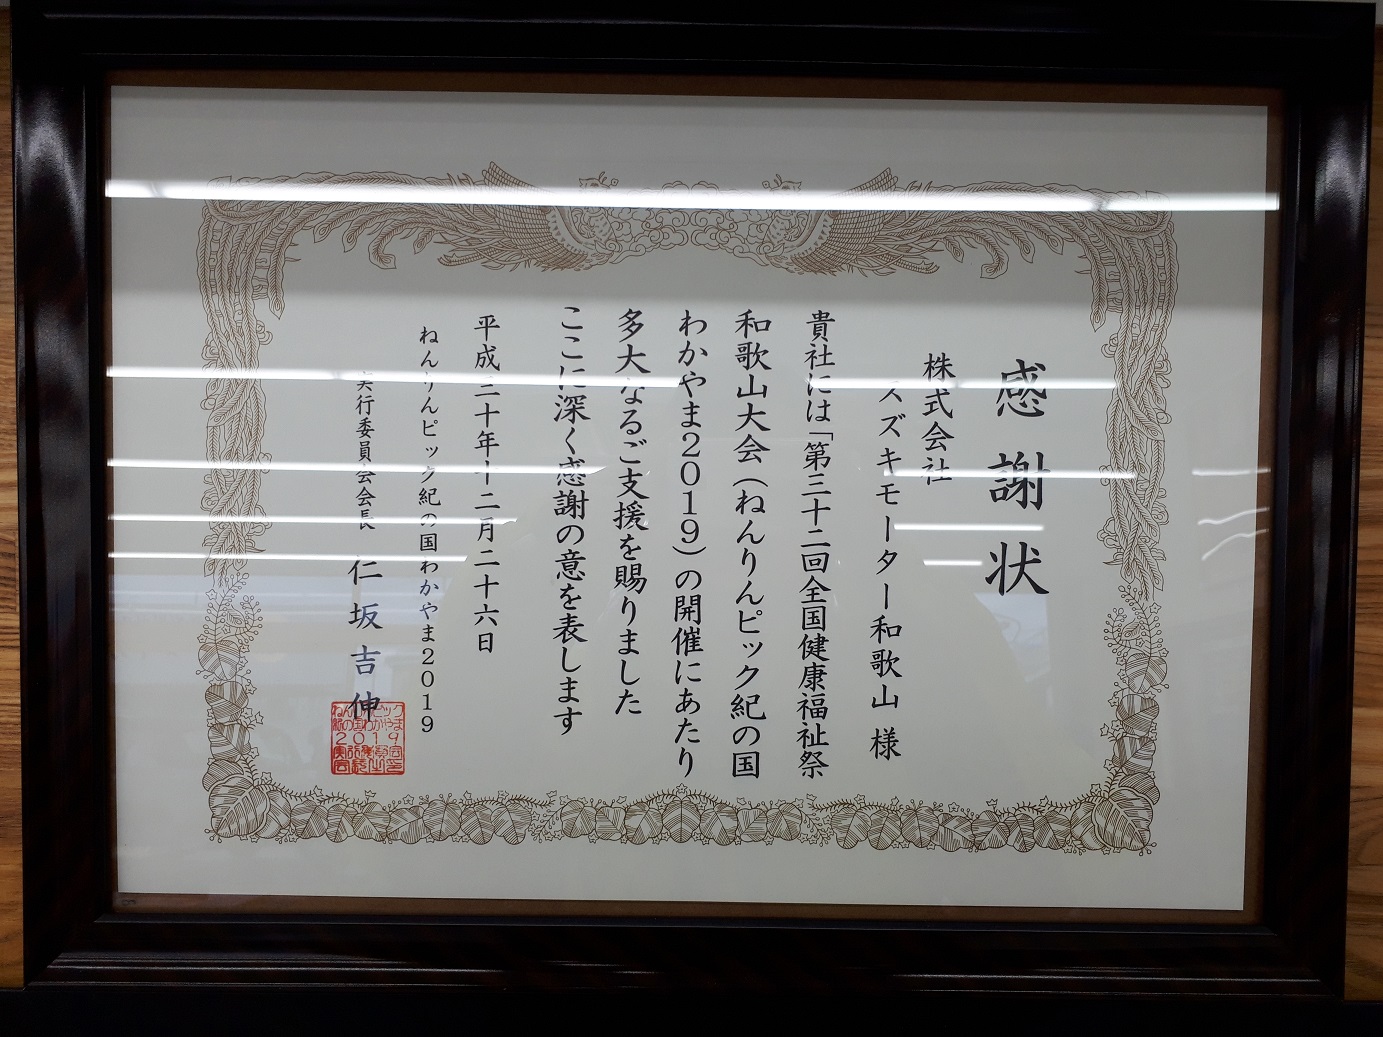 感謝状
株式会社
スズキモーター和歌山 様
貴社には「第三十二回全国健康福祉祭
和歌山大会(ねんりんピック紀の国
わかやま2019)の開催にあたり
多大なるご支援を賜りました
ここに深く感謝の意を表します
平成三十年十二月二十六日
ねんりんピック紀の国わかやま2019
実行委員会会長 仁坂吉伸